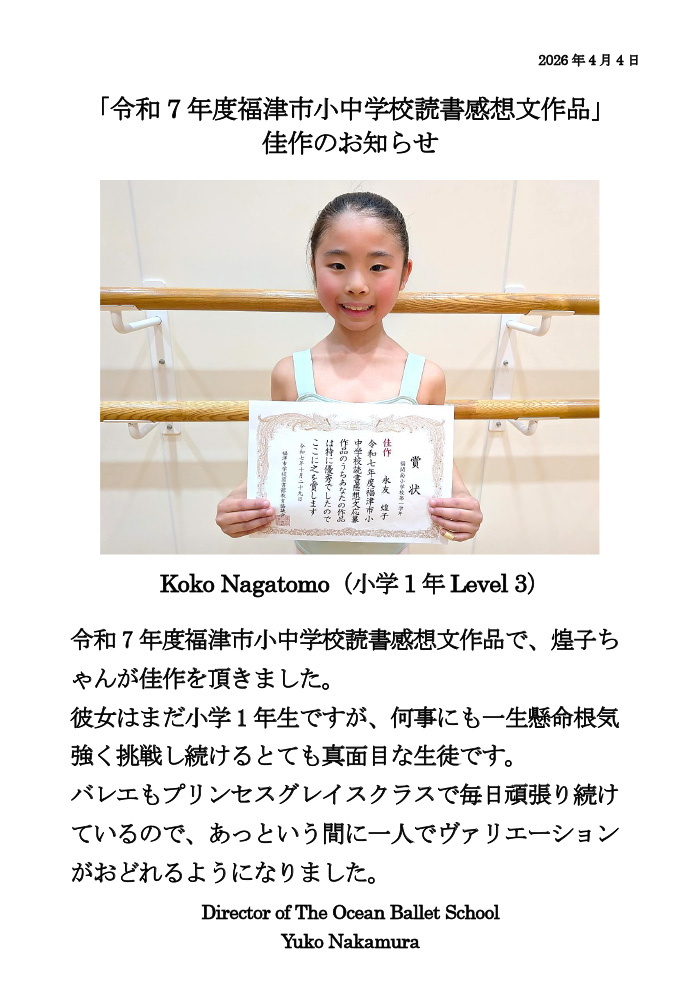 2026年4月4日
「令和7年度福津市小中学校読書感想文作品」
佳作のお知らせ
賞状
福間南小学校第一学年
佳作 永友 煌子
令和七年度福津市小
中学校読書感想文応募
作品のうちあなたの作品
は特に優秀でしたので
ここに之を賞します
令和七年十月二十九日
Koko Nagatomo（小学1年Level 3）
令和7年度福津市小中学校読書感想文作品で、煌子ち
ゃんが佳作を頂きました。
彼女はまだ小学1年生ですが、何事にも一生懸命根気
強く挑戦し続けるとても真面目な生徒です。
バレエもプリンセスグレイスクラスで毎日頑張り続け
ているので、あっという間に一人でヴァリエーション
がおどれるようになりました。
Director of The Ocean Ballet School
Yuko Nakamura